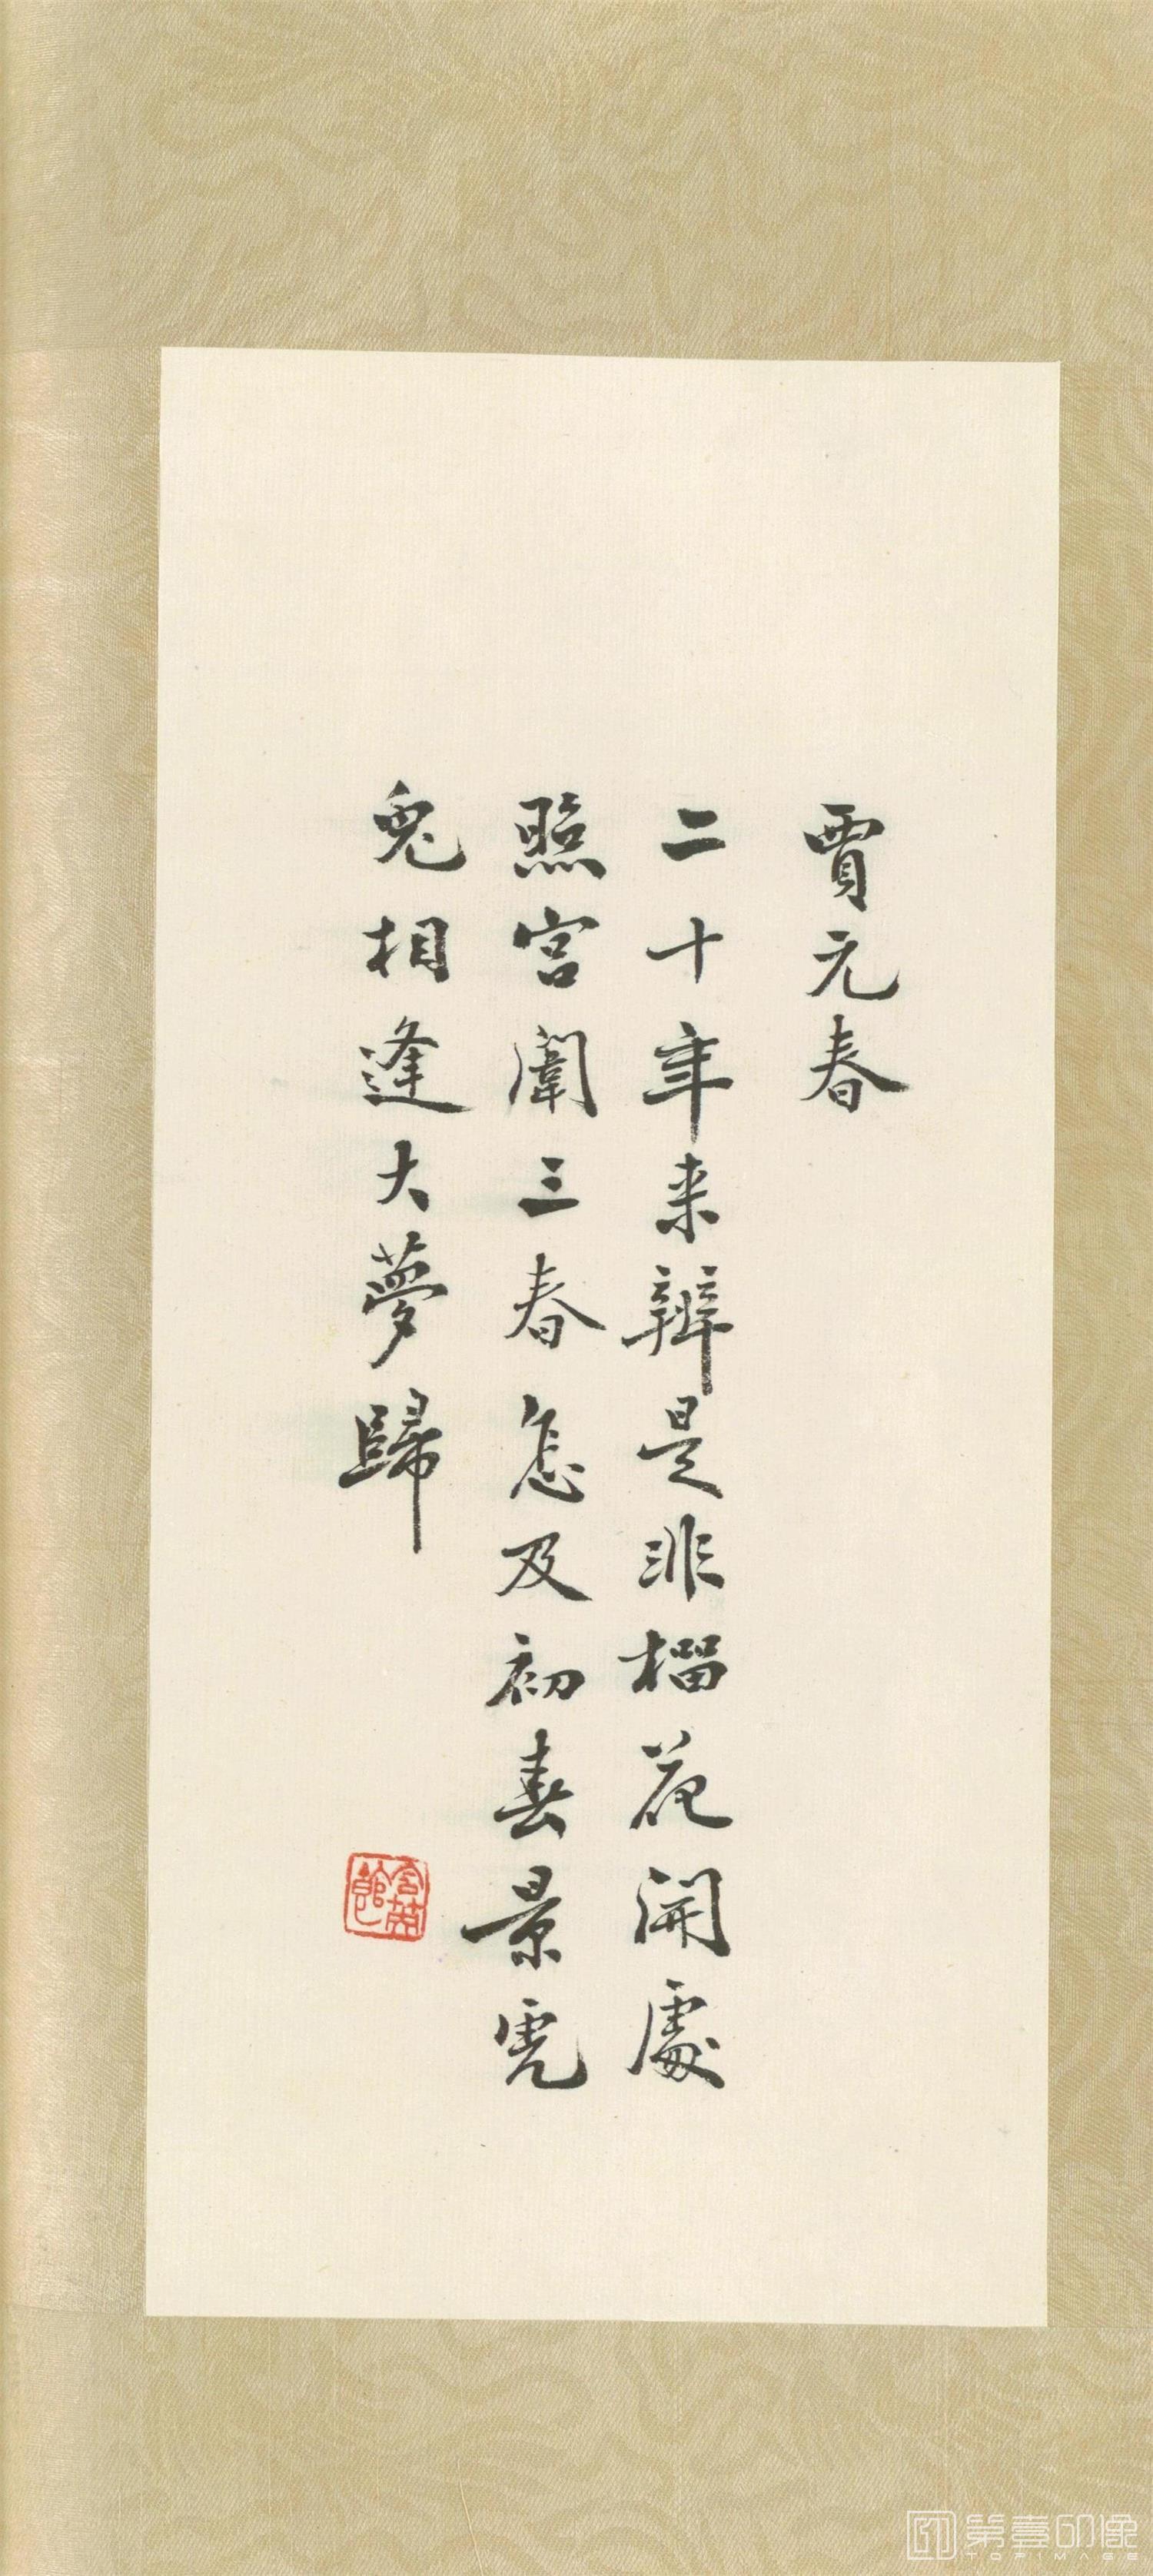 賈元春
二十年来辨是非榴花開處
照宮闈三春怎及初春景虎
兔相逢大夢歸
第壹印像
TOPIMAGE